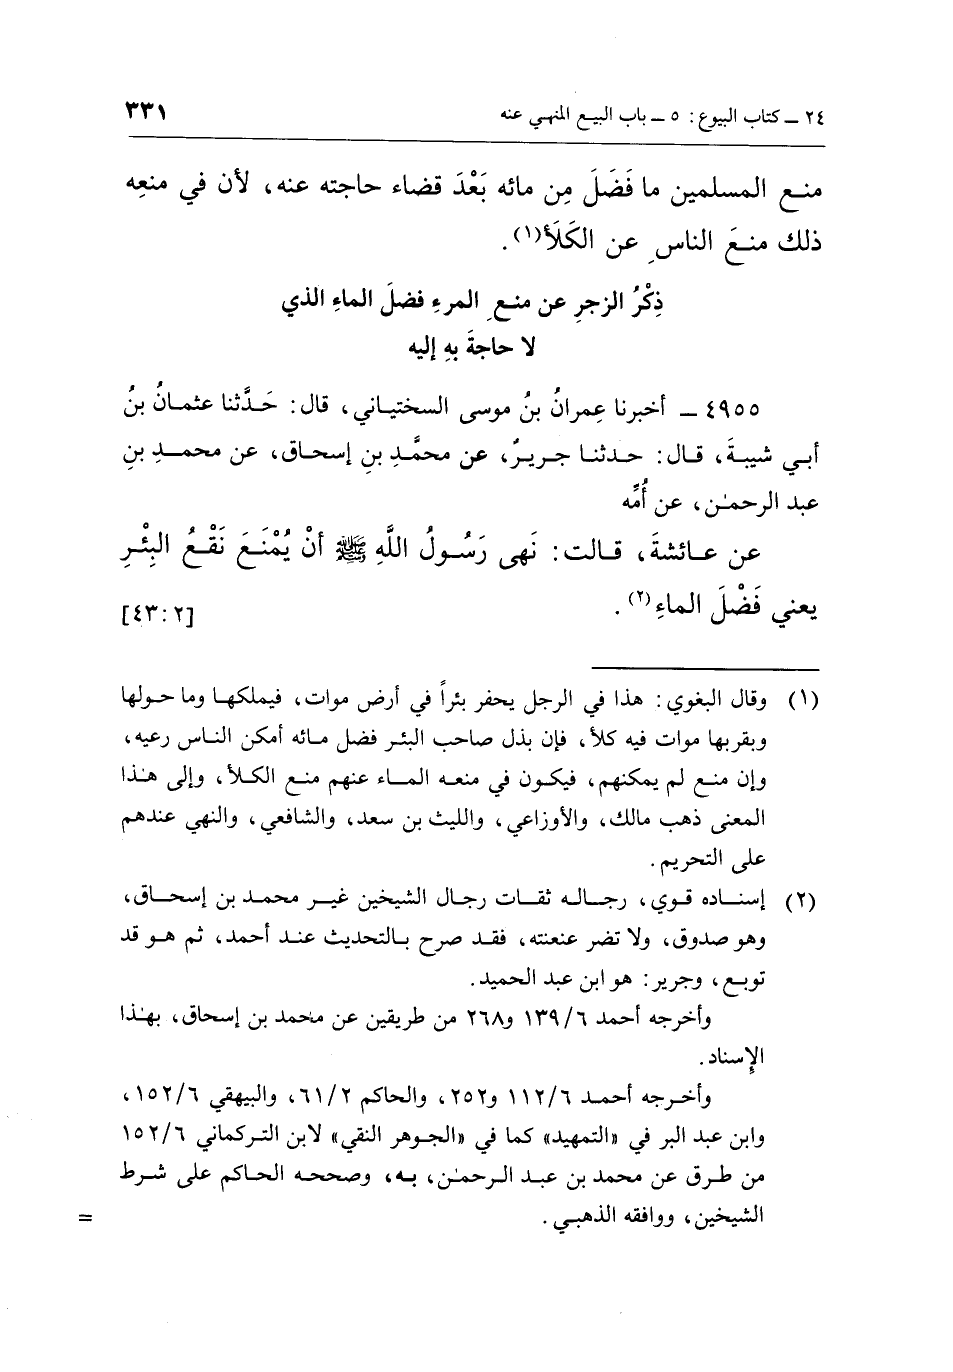 ٢٤ ــ كتاب البيوع: ٥ ــ باب البيع المنهي عنه ٣٣١
منع المسلمين ما فَضَلَ مِن مائه بَعْدَ قضاء حاجته عنه، لأن في منعِه
ذلك منعَ الناسِ عن الكَلَأ(١).
ذِكْرُ الزجرِ عن منعِ المرءِ فضلَ الماءِ الذي
لا حاجةَ بهِ إليه
٤٩٥٥ ــ أخبرنا عِمرانُ بنُ موسى السختياني، قال: حَدَّثنا عثمانُ بنُ
أبي شيبةَ، قال: حدثنا جريرٌ، عن محمَّدِ بنِ إسحاق، عن محمدِ بنِ
عبد الرحمٰن، عن أُمِّه
عن عائشةَ، قالت: نَهى رَسُولُ اللَّهِ ﷺ أنْ يُمْنَعَ نَقْعُ البِئْرِ
يعني فَضْلَ الماءِ(٢). [٢:٤٣]
(١) وقال البغوي: هذا في الرجل يحفر بئراً في أرض موات، فيملكها وما حولها
وبقربها موات فيه كلأ، فإن بذل صاحب البئر فضل مائه أمكن الناس رعيه،
وإن منع لم يمكنهم، فيكون في منعه الماء عنهم منع الكلأ، وإلى هذا
المعنى ذهب مالك، والأوزاعي، والليث بن سعد، والشافعي، والنهي عندهم
على التحريم.
(٢) إسناده قوي، رجاله ثقات رجال الشيخين غير محمد بن إسحاق،
وهو صدوق، ولا تضر عنعنته، فقد صرح بالتحديث عند أحمد، ثم هو قد
توبع، وجرير: هو ابن عبد الحميد.
وأخرجه أحمد ١٣٩/٦ و٢٦٨ من طريقين عن محمد بن إسحاق، بهذا
الإسناد.
وأخرجه أحمد ١١٢/٦ و٢٥٢، والحاكم ٦١/٢، والبيهقي ١٥٢/٦،
وابن عبد البر في «التمهيد» كما في «الجوهر النقي» لابن التركماني ١٥٢/٦
من طرق عن محمد بن عبد الرحمٰن، به، وصححه الحاكم على شرط
الشيخين، ووافقه الذهبي. =